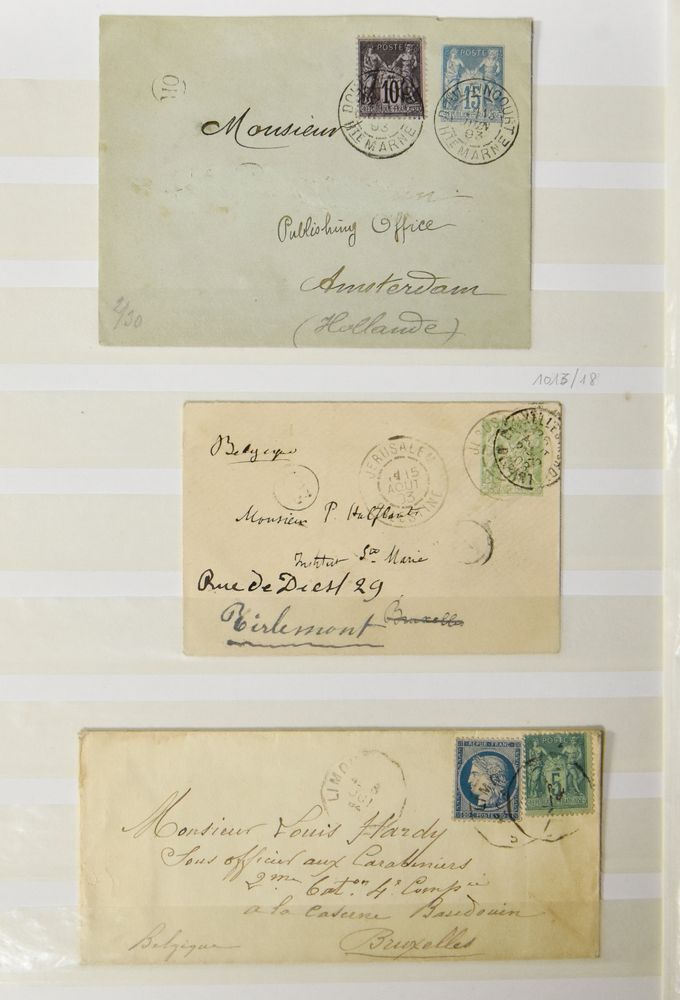 POSTE
10
POSTE
15
HTE MARNE
93
HTE MARNE
93
OM
Monsieur
Publishing Office
Amsterdam
(Hollande)
2/30
1013/18
Belgique
JERUSALEM
15
AOUT
PALESTINE
JERUSALEM
Monsieur P. Halflants
Institut Ste Marie
Rue de Diest 29
Tirlemont Bruxelles
LIMO
REPUB. FRANC.
POSTE
5
Monsieur Louis Hardy
Sous officier aux Carabiniers
2me Baton 4e Compie
a la caserne Baudouin
Belgique Bruxelles